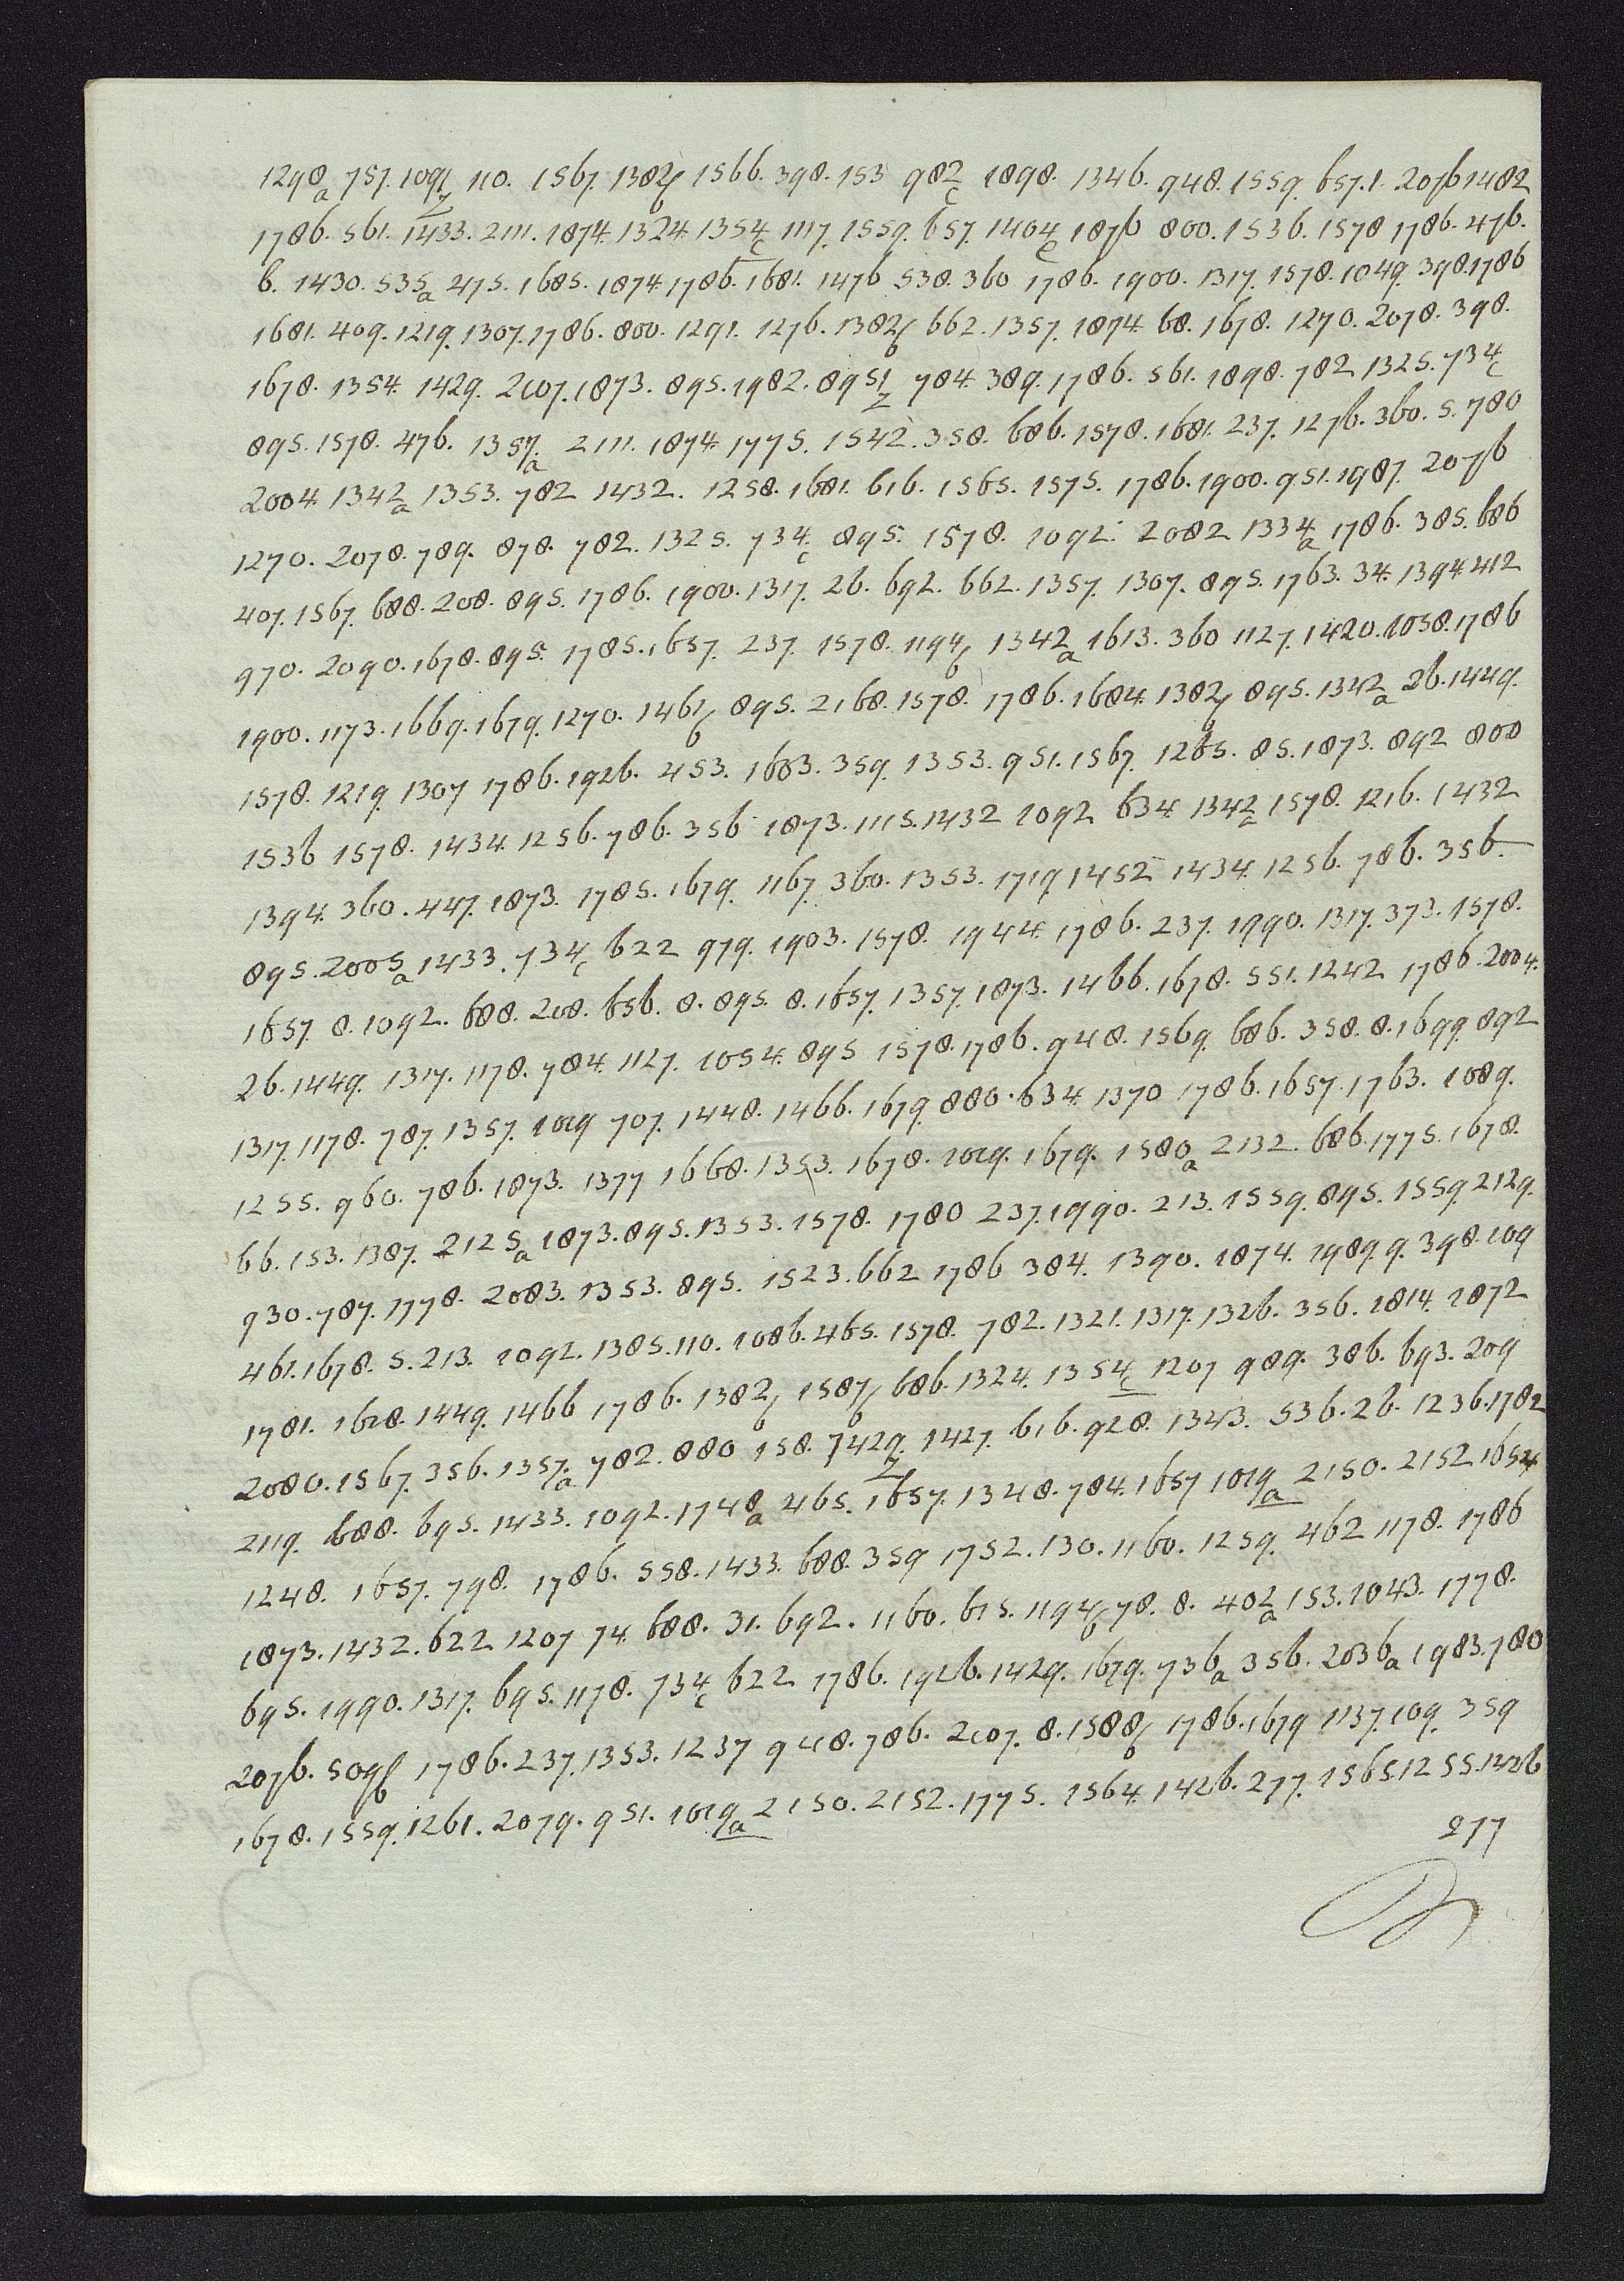 1298a 757. 1091z 110. 1567. 1382b 1566. 398. 153 982c 1898. 1346. 948. 1559. 657. 1. 2076 1482
1786. 561. 1433. 2111. 1874. 1324. 1354c 1117. 1559. 657. 1404c 1876 800. 1536. 1578 1786. 476.
6. 1430. 535a 475. 1685. 1874 1786. 1681. 1476 538. 360 1786. 1900. 1317. 1578. 1049. 398. 1786
1681. 409. 1219. 1307. 1786. 800. 1291. 1276. 1382b 662. 1357. 1874. 68. 1678. 1270. 2078. 398.
1678. 1354. 1429. 2107. 1873. 895. 1982. 8951z 784. 389. 1786. 561. 1898. 782 1325. 734c
895. 1578. 476. 1357a 2111. 1874. 1775. 1542. 358. 686. 1578. 1681. 237. 1276. 360. 5. 780
2004. 1342a 1353. 782 1432. 1258. 1681. 616. 1565. 1575. 1786. 1900. 951. 1987. 2076
1270. 2078. 789. 878. 782. 1325. 734c 895. 1578. 1092. 2082 1334a 1786. 385. 686
407. 1567. 688. 208. 895. 1786. 1900. 1317. 26. 692. 662. 1357. 1307. 895. 1763. 34. 1394. 412
970. 2090. 1678. 895. 1785. 1657. 237. 1578. 1194b 1342a 1613. 360 1127. 1420. 1058. 1786
1900. 1173. 1669. 1679. 1270. 1461b 895. 2168. 1578. 1786. 1684. 1382b 895. 1342a 26. 1449.
1578. 1219. 1307 1786. 1926. 453. 1683. 359. 1353. 951. 1567. 1265. 85. 1873. 892 800
1536 1578. 1434. 1256. 786. 356 1873. 1115. 1432 1092 634. 1342a 1578. 1216. 1432
1394. 360. 447. 1873. 1785. 1679. 1167. 360. 1353. 1719. 1452 1434. 1256. 786. 356.
895. 2005a 1433. 734c 622 979. 1903. 1578. 1944. 1786. 237. 1990. 1317. 373. 1578.
1657. 8. 1092. 688. 208. 656. 8. 895. 8. 1657. 1357. 1873. 1466. 1678. 551. 1242 1786. 2004.
26. 1449. 1317. 1178. 784. 1127. 1054. 895 1578. 1786. 948. 1569. 686. 358. 8. 1699. 892
1317. 1178. 787. 1357. 1019 707. 1448. 1466. 1679. 880. 634. 1370 1786. 1657. 1763. 1089.
1255. 960. 786. 1873. 1377 1668. 1353. 1678. 1019. 1679. 1580a 2132. 686. 1775. 1678.
66. 153. 1387. 2125a 1873. 895. 1353. 1578. 1780 237. 1990. 213. 1559. 895. 1559. 2129.
930. 787. 1778. 2083. 1353. 895. 1523. 662 1786 384. 1390. 1874. 1989. 9. 398. 109
461. 1678. 5. 213. 1092. 1385. 110. 1086. 465. 1578. 782. 1321. 1317. 1326. 356. 1814. 1872
1781. 1628. 1449. 1466 1786. 1382b 1587b 686. 1324. 1354c 1207 989. 386. 693. 209
2080. 1567. 356. 1357a 782. 880 158. 7429z 1427. 616. 928. 1343. 536. 26. 1236. 1782
2119. 688. 695. 1433. 1092. 1748a 465. 1657. 1348. 784. 1657 1019a 2150. 2152 1654
1248. 1657. 798. 1786. 558. 1433. 688. 359 1752. 130. 1160. 1259. 462 1178. 1786
1873. 1432. 622 1207 74. 688. 31. 692. 1160. 615. 1194b 78. 8. 402a 153. 1043. 1778.
695. 1990. 1317. 695. 1178. 734c 622 1786. 1926. 1429. 1679. 736a 356. 2036a 1983. 780
2076. 509b 1786. 237. 1353. 1237 948. 786. 2107. 8. 1588b 1786. 1679 1137. 109. 359
1678. 1559. 1261. 2079. 951. 1019a 2150. 2152. 1775. 1564. 1426. 277. 1565. 1255. 1426
277